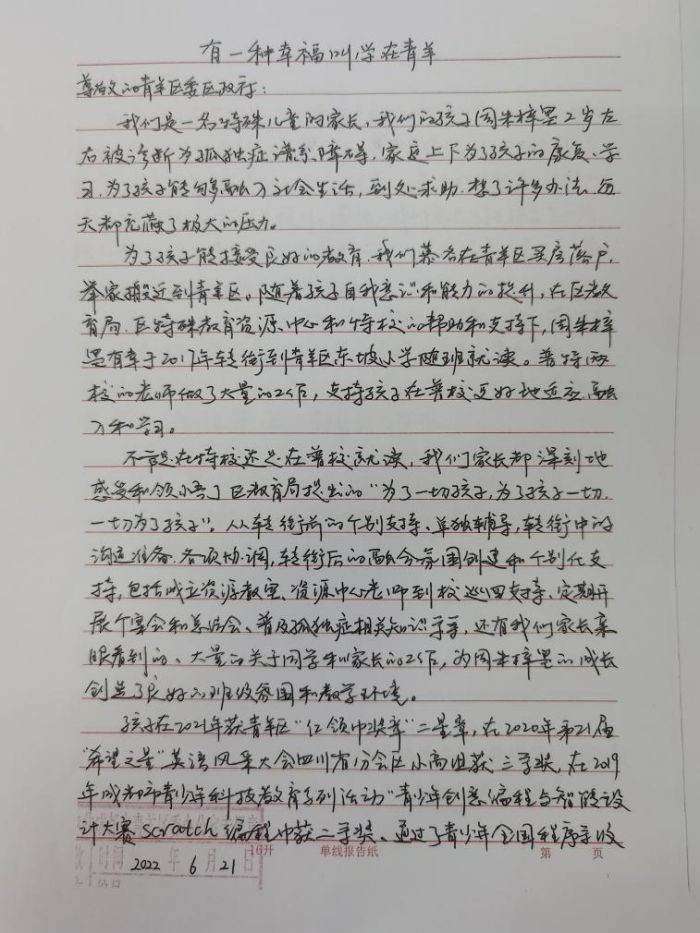 有一种幸福叫学在青羊
尊敬的青羊区委区政府:
我们是一名特殊儿童的家长,我们的孩子周朱梓墨2岁左
右被诊断为孤独症谱系障碍,家庭上下为了孩子的康复、学
习,为了孩子能够融入社会生活,到处求助,想了许多办法,每
天都充满了极大的压力。
为了孩子能接受良好的教育,我们慕名在青羊区买房落户,
举家搬迁到青羊区。随着孩子自我意识和能力的提升,在区教
育局、区特殊教育资源中心和特校的帮助和支持下,周朱梓
墨有幸于2017年转衔到青羊区东坡小学随班就读。普特两
校的老师做了大量的工作,支持孩子在普校更好地适应、融
入和学习。
不管是在特校还是在普校就读,我们家长都深刻地
感受和领悟了区教育局提出的“为了一切孩子,为了孩子一切,
一切为了孩子”。从转衔前的个别支持、单独辅导,转衔中的
沟通准备、各项协调,转衔后的融合氛围创建和个别化支
持,包括成立资源教室、资源中心老师到校巡回支持、定期开
展个案会和总结会、普及孤独症相关知识等等,还有我们家长亲
眼看到的、大量的关于同学和家长的工作,为周朱梓墨的成长
创造了良好的班级氛围和教学环境。
孩子在2021年获青羊区“红领巾奖章”二星章,在2020年第21届
“希望之星”英语风采大会四川省分会区小高组获三等奖,在2019
年成都市青少年科技教育系列活动“青少年创意编程与智能设
计大赛scratch编程中获二等奖、通过了青少年全国程序等级
时间 2022 年 6 月 21 日
16开 单线报告纸 第 页